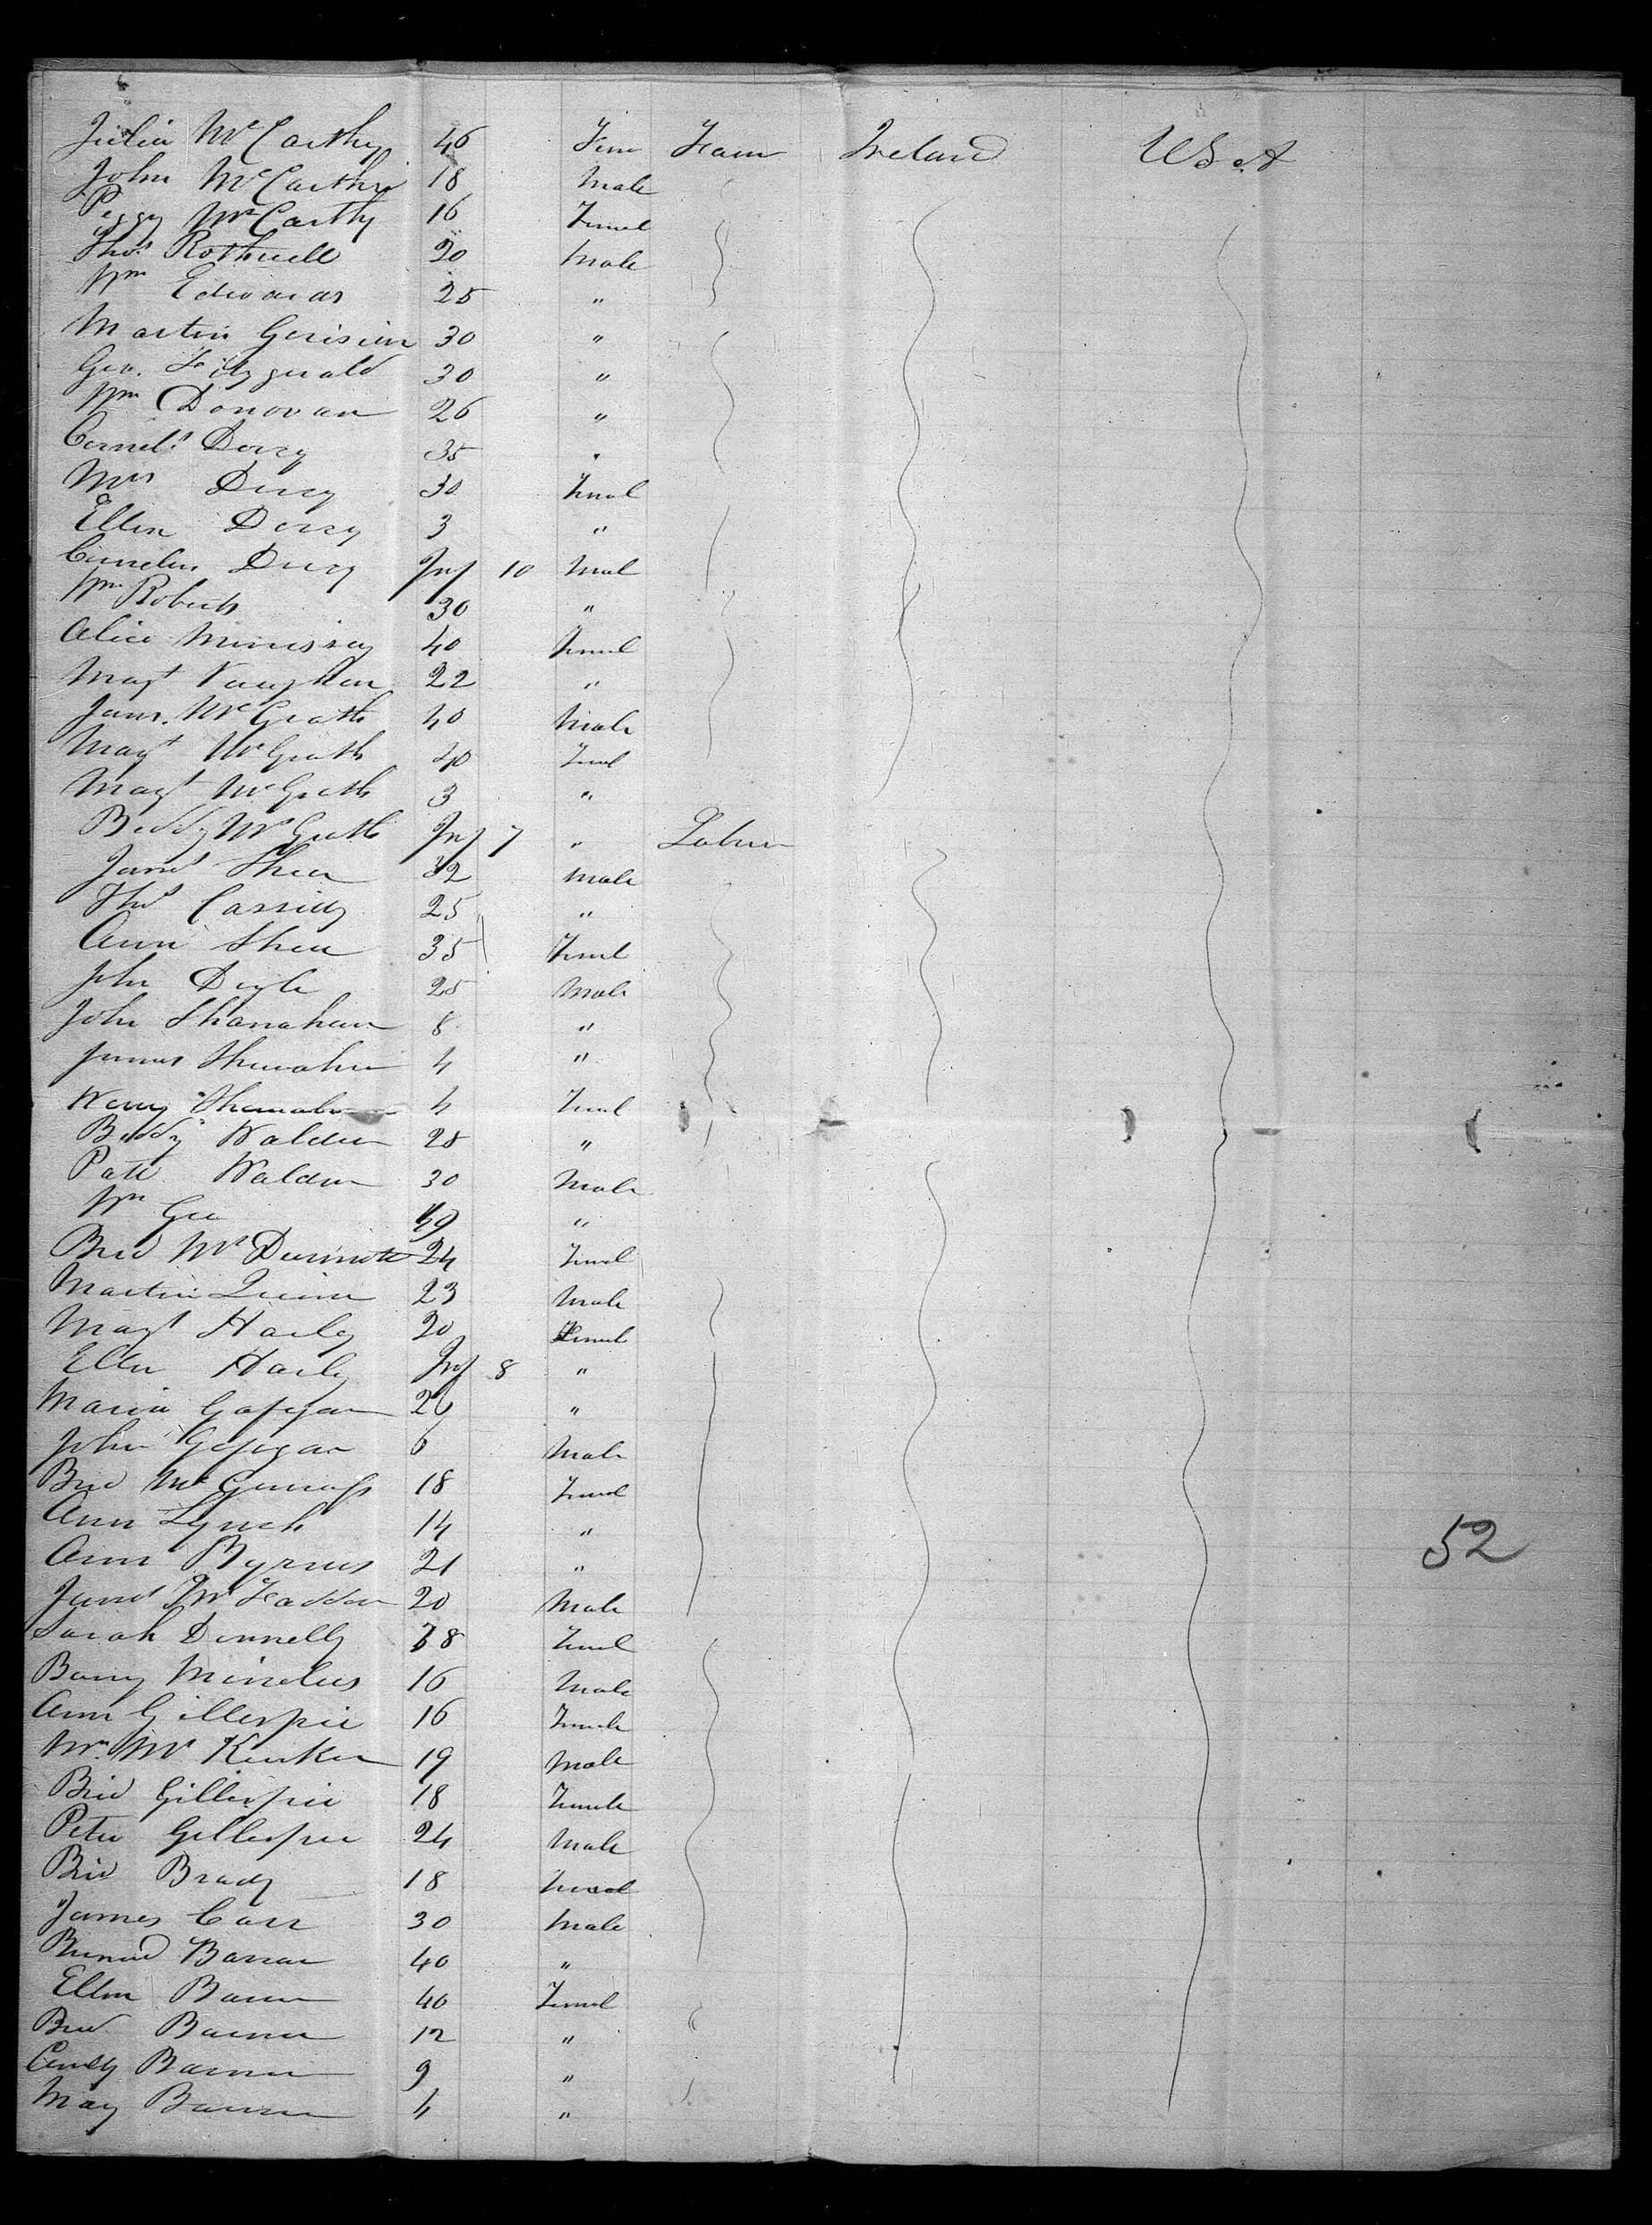 Julia McCarthy 46 Fem Farm Ireland USA
John McCarthy 18 Male
Peggy McCarthy 16 Femal
Thos Rothwell 20 Male
Wm Edwards 25 "
Martin 30 "
Geo. Fitzgerald 30 "
Wm Donovan 26 "
Cornels Dorcy 35 "
Mrs Dorcy 30 Femal
Ellen Dorcy 3 "
Cornelius Dorcy Inf 10 Mal
Wm Roberts 30 "
Alice Morrissey 40 Femal
Magt Vaughan 22 "
Jams. McGrath 40 Male
Magt McGrath 40 Femal
Magt McGrath 3 "
Biddy McGrath Inf 7 " Labrer
James Shea 32 Male
Thos Cassidy 25 "
Ann Shea 35 Femal
John Doyle 25 Male
John Shanahan 8 "
James Shanahan 4 "
Shanahan 4 Femal
Biddy Waldron 28 "
Patt Waldron 30 Male
Wm Gee "
Brid McDermott 24 Femal
Martin Quinn 23 Male
Magt Harly 20 Femal
Ellen Harly Inf 8 "
Maria Gafegan 26 "
John Gafegan 6 Male
Brid 18 Femal
Ann Lynch 14 "
Ann Byrnes 21 " 52
James McFadden 20 Male
Sarah Donnelly Femal
Barny 16 Male
Ann Gillespie 16 Female
Wm. Mc 19 Male
Brid Gillespie 18 Female
Peter Gillespie 24 Male
Brid Brady 18 Femal
James Carr 30 Male
Bernard Barran 40 "
Ellen Barran 40 Femal
Brid Barran 12 "
Barran 9 "
Mary Barran 4 "